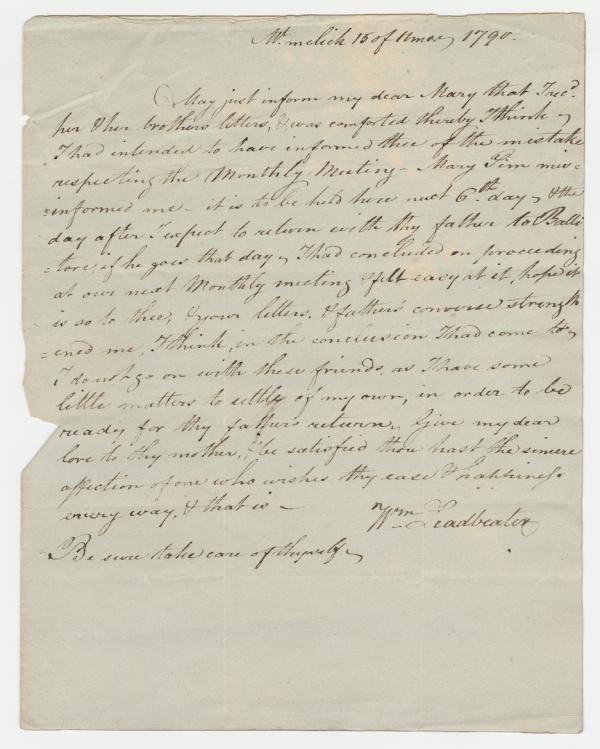 Mt. melick 15 of 11mo, 1790.
May just inform my dear Mary that I recd.
her & her brothers letters, & was comforted thereby I think,
I had intended to have informed thee of the mistake
respecting the Monthly Meeting - Mary Pim mis=
=informed me - it is to be held here next 6th. day, & the
day after I expect to return with thy father to Balli
=tore, if he goes that day, I had concluded on proceeding
at our next Monthly meeting & felt easy at it, hope it
is so to thee, & your letters, & father's converse strength
=ened me, I think, in the conclusion I had come to,
I do not go on with these friends, as I have some
little matters to settle of my own, in order to be
ready for thy father's return, Give my dear
love to thy mother, & be satisfied thou hast the sincere
affection of one who wishes thy ease & happiness
every way, & that is -
Wm. Leadbeater
Be sure take care of thyself,